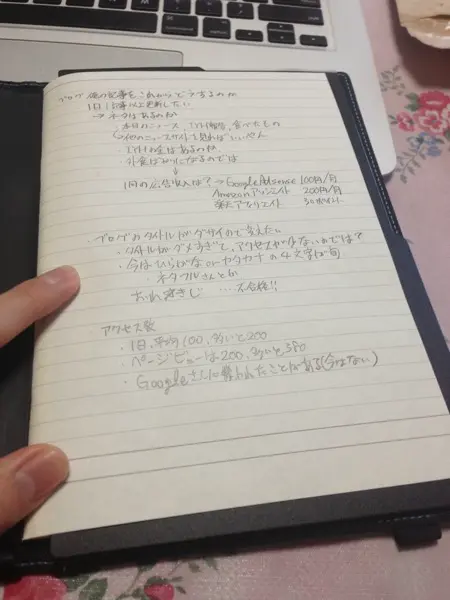 ブログ 俺の記事をこれからどうするのか
1日1記事以上更新したい
→ネタはあるのか
・本日のニュース、食べたもの
→他のニュースサイトを見ればいいやん
お金はあるのか
外食ばかりになるのでは
↓
1円の広告収入は?→Google Adsense 100円/月
Amazonアソシエイト 200円/月
楽天アフィリエイト 30ポイント
ブログのタイトルがダサイので変えたい
・タイトルがダメすぎて、アクセスが少ないのでは?
・今はひらがなorカタカナの4文字が旬
ネタフルさんとか
おれきじ …不合格!!
アクセス数
・1日、平均100、多いと200
・ページビューは200、多いと350
・Googleさんに嫌われたことがある(今はない)